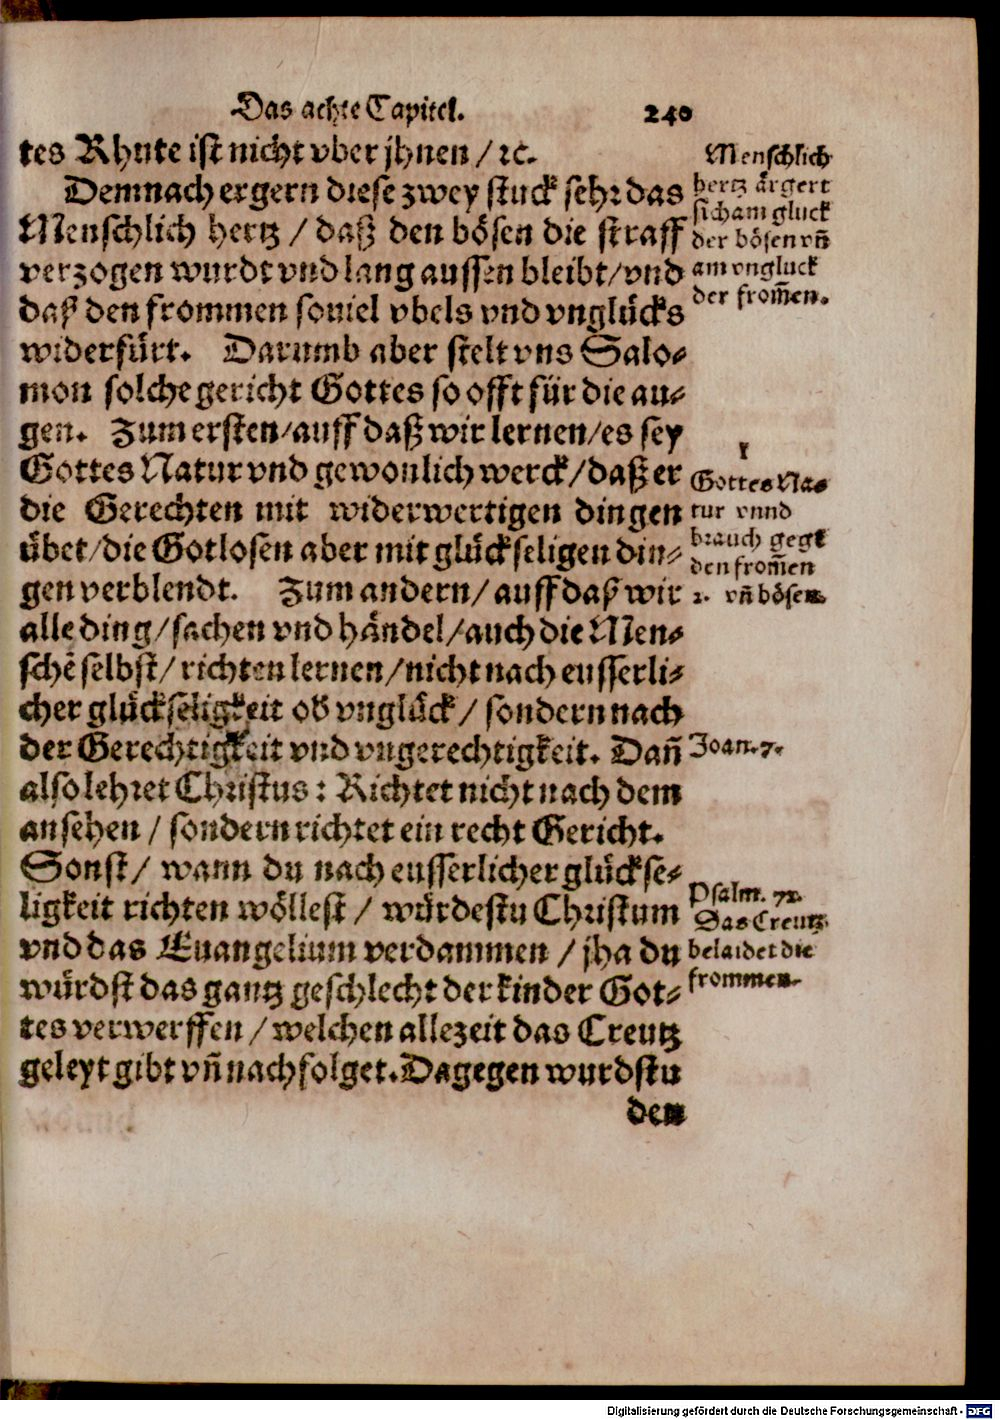 Das achte Capitel. 240
tes Rhute ist nicht vber jhnen / ꝛc.
Demnach ergern diese zwey stuck sehr das
Menschlich hertz / daß den bösen die straff
verzogen wurdt vnd lang aussen bleibt / vnd
daß den frommen souiel vbels vnd vnglücks
widerfürt. Darumb aber stelt vns Salo-
mon solche gericht Gottes so offt für die au-
gen. Zum ersten / auff daß wir lernen / es sey
Gottes Natur vnd gewonlich werck / daß er
die Gerechten mit widerwertigen dingen
übet / die Gotlosen aber mit glückseligen din-
gen verblendt. Zum andern / auff daß wir
alle ding / sachen vnd händel / auch die Men-
schē selbst / richten lernen / nicht nach eusserli-
cher glückseligkeit ob vnglück / sondern nach
der Gerechtigkeit vnd vngerechtigkeit. Dañ
also lehret Christus : Richtet nicht nach dem
ansehen / sondern richtet ein recht Gericht.
Sonst / wann du nach eusserlicher glückse-
ligkeit richten wöllest / würdestu Christum
vnd das Euangelium verdammen / jha du
würdst das gantz geschlecht der kinder Got-
tes verwerffen / welchen allezeit das Creutz
geleyt gibt vñ nachfolget. Dagegen wurdstu
den
Menschlich
hertz ärgert
sich am gluck
der bösen vñ
am vngluck
der from̄en.
1
Gottes Na-
tur vnnd
brauch gegē
den from̄en
2. vñ bösen.
Joan. 7.
Psalm. 72.
Das Creutz
belaidet die
frommen.
Digitalisierung gefördert durch die Deutsche Forschungsgemeinschaft - DFG